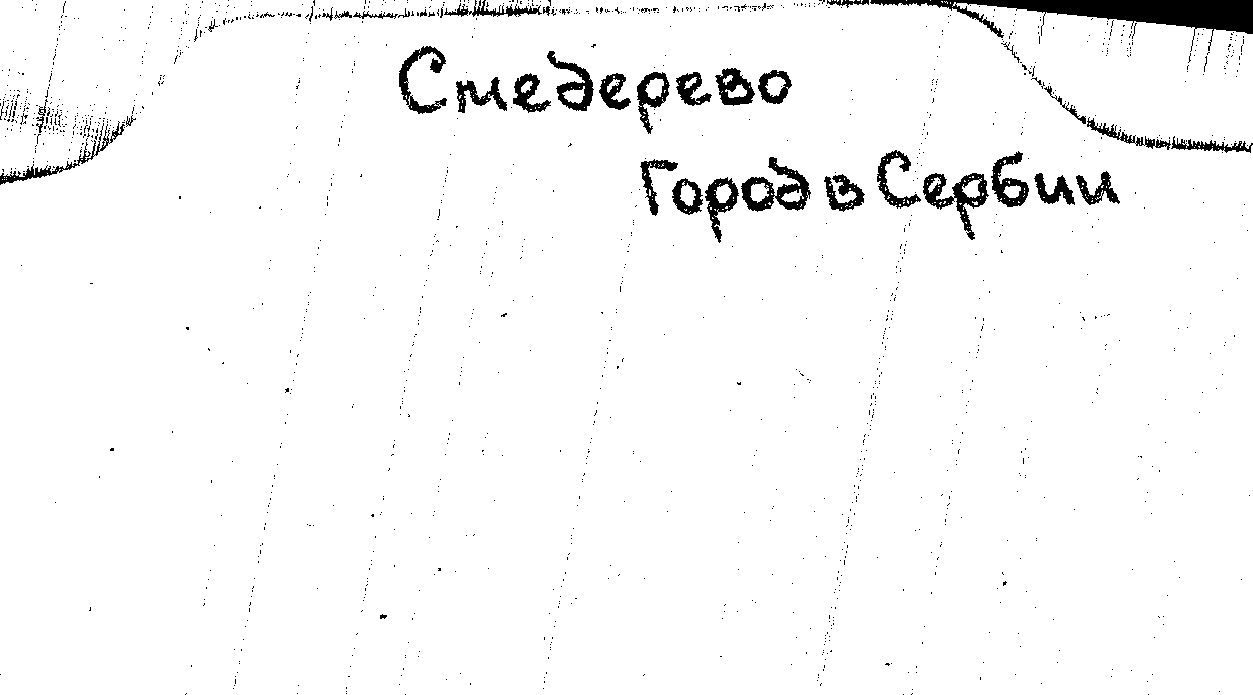 Смедерево
Город в Сербии